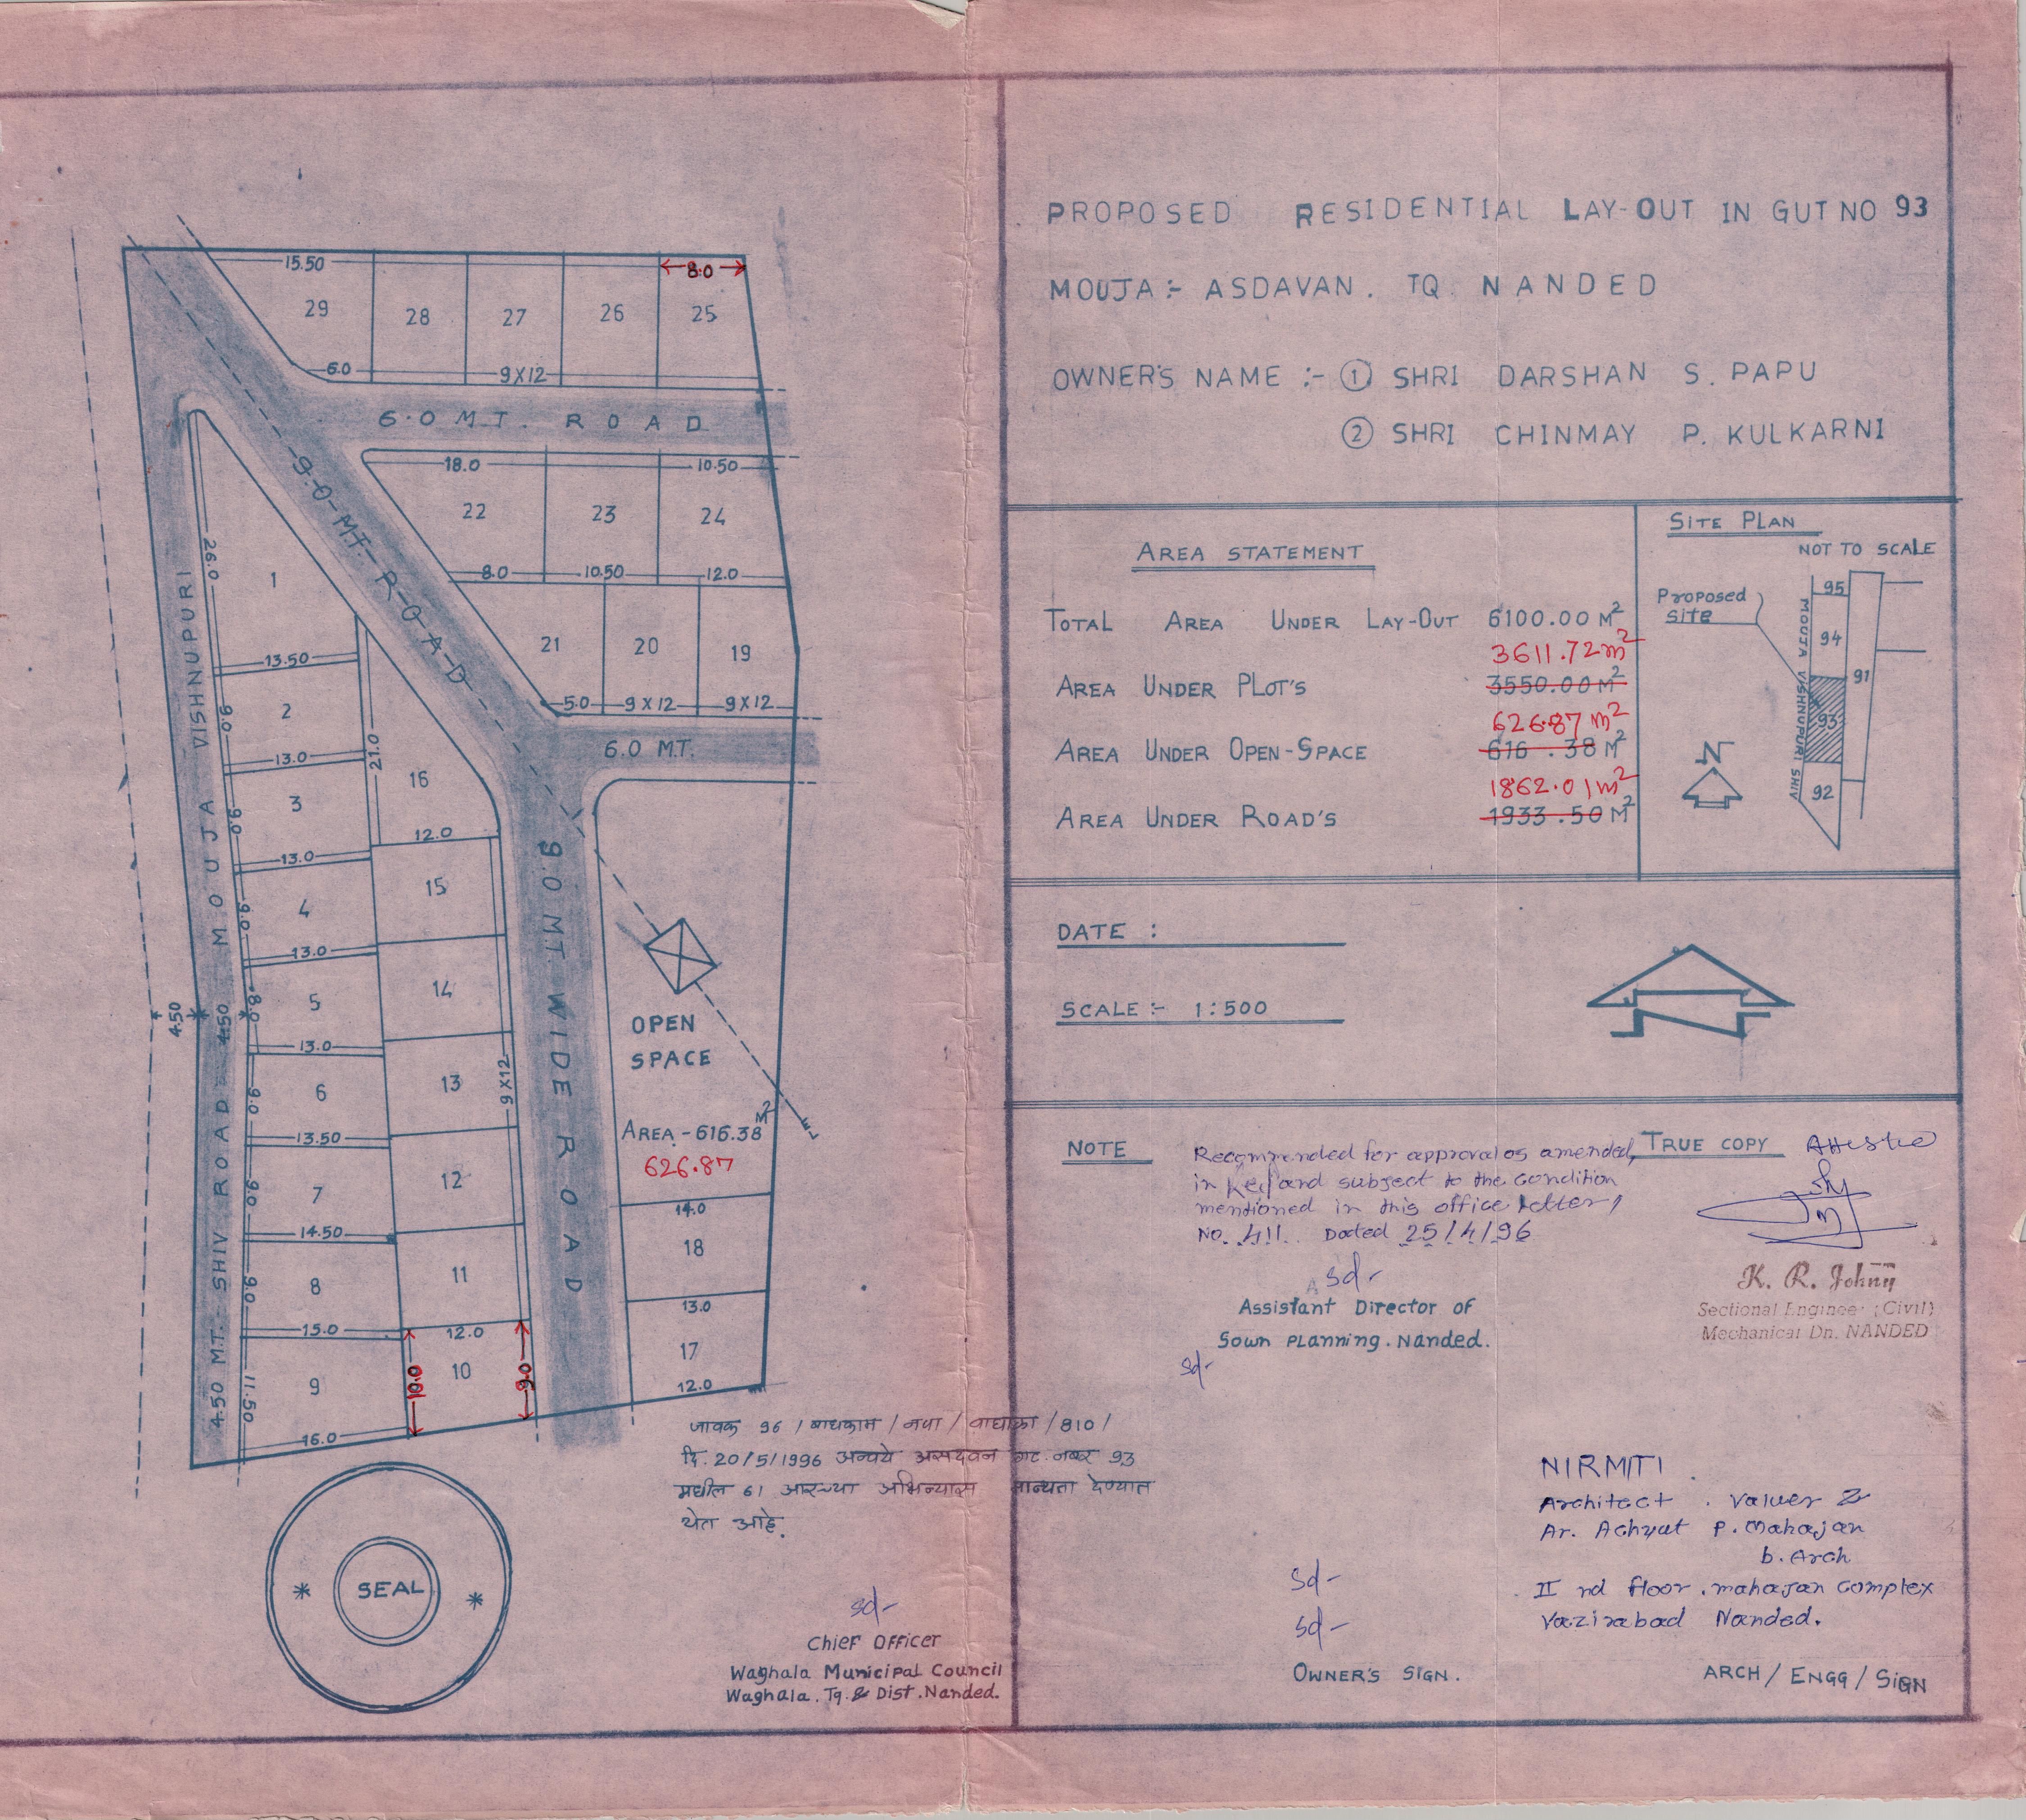 PROPOSED RESIDENTIAL LAY-OUT IN GUT NO 93
MOUJA :- ASDAVAN. TQ. NANDED
OWNER'S NAME :- ① SHRI DARSHAN S. PAPU
② SHRI CHINMAY P. KULKARNI
AREA STATEMENT
TOTAL AREA UNDER LAY-OUT 6100.00 M²
3611.72 m²
AREA UNDER PLOT'S 3550.00 M²
626.87 m²
AREA UNDER OPEN-SPACE 616.38 M²
1862.01 m²
AREA UNDER ROAD'S 1933.50 M²
SITE PLAN
NOT TO SCALE
Proposed
site
95
94
91
93
92
MOUJA VISHNUPURI SHIV
N
DATE :
SCALE :- 1:500
NOTE
Recommended for approval as amended,
in Red and subject to the condition
mentioned in this office letter,
No. 411. Dated 25/4/96
sd-
Assistant Director of
Sown PLanning. Nanded.
sd-
TRUE COPY
K. R. Johny
Sectional Engineer (Civil)
Mechanical Dn. NANDED
NIRMITI
Architect. Valuer &
Ar. Achyut P. Mahajan
b. Arch
II nd floor. mahajan complex
Vazirabad Nanded.
sd-
sd-
OWNER'S SIGN.
ARCH / ENGG / SIGN
15.50
8.0
29
28
27
26
25
6.0
9X12
6.0 MT. ROAD
9.0 MT. ROAD
18.0
10.50
22
23
24
8.0
10.50
12.0
21
20
19
5.0
9X12
9X12
6.0 MT.
1
26.0
13.50
2
9.0
13.0
21.0
16
3
9.0
12.0
13.0
15
4
9.0
13.0
14
5
8.0
13.0
13
9X12
6
9.0
13.50
12
7
9.0
14.50
11
8
9.0
15.0
12.0
10
10.0
9.0
9
11.50
16.0
4.50
4.50
4.50 MT. SHIV ROAD MOUJA VISHNUPURI
9.0 MT. WIDE ROAD
OPEN
SPACE
AREA - 616.38 M²
626.87
14.0
18
13.0
17
12.0
जावक 96 / बाधकाम / नपा / वाघाळा / 810 /
दि. 20/5/1996 अन्वये असदवन गट नबर 93
मधील 61 आरच्या अभिन्यास मान्यता देण्यात
येत आहे.
SEAL
sd-
Chief Officer
Waghala Municipal Council
Waghala. Tq. & Dist. Nanded.